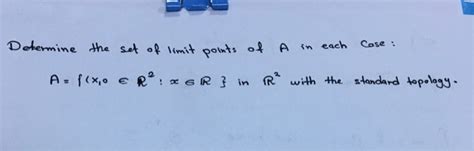 Determine the set of limit points of A in each Case :
A = {(x,0 ∈ R² : x ∈ R } in R² with the standard topology.